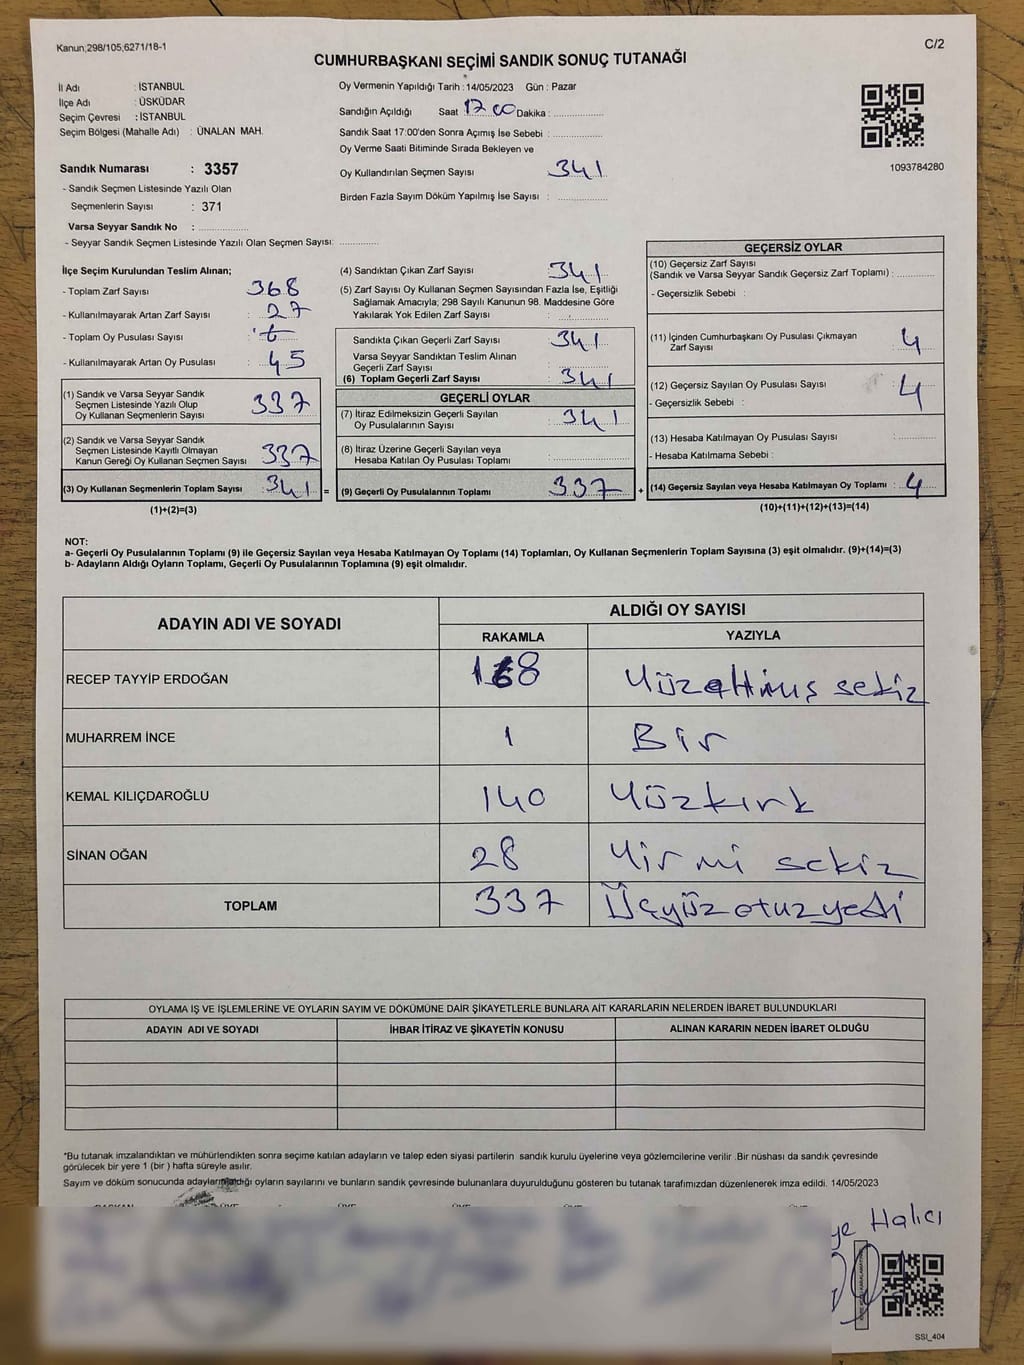 Kanun;298/105;6271/18-1
C/2
CUMHURBAŞKANI SEÇİMİ SANDIK SONUÇ TUTANAĞI
İl Adı : İSTANBUL
İlçe Adı : ÜSKÜDAR
Seçim Çevresi : İSTANBUL
Seçim Bölgesi (Mahalle Adı) : ÜNALAN MAH.
Oy Vermenin Yapıldığı Tarih : 14/05/2023 Gün : Pazar
Sandığın Açıldığı Saat 17 00 Dakika :
Sandık Saat 17:00'den Sonra Açımış İse Sebebi :
Oy Verme Saati Bitiminde Sırada Bekleyen ve
Oy Kullandırılan Seçmen Sayısı 341
Birden Fazla Sayım Döküm Yapılmış İse Sayısı :
1093784280
Sandık Numarası : 3357
- Sandık Seçmen Listesinde Yazılı Olan
Seçmenlerin Sayısı : 371
Varsa Seyyar Sandık No :
- Seyyar Sandık Seçmen Listesinde Yazılı Olan Seçmen Sayısı:
İlçe Seçim Kurulundan Teslim Alınan;
- Toplam Zarf Sayısı : 368
- Kullanılmayarak Artan Zarf Sayısı : 27
- Toplam Oy Pusulası Sayısı :
- Kullanılmayarak Artan Oy Pusulası : 45
(1) Sandık ve Varsa Seyyar Sandık
Seçmen Listesinde Yazılı Olup
Oy Kullanan Seçmenlerin Sayısı 337
(2) Sandık ve Varsa Seyyar Sandık
Seçmen Listesinde Kayıtlı Olmayan
Kanun Gereği Oy Kullanan Seçmen Sayısı 337
(3) Oy Kullanan Seçmenlerin Toplam Sayısı : 341
(1)+(2)=(3)
(4) Sandıktan Çıkan Zarf Sayısı : 341
(5) Zarf Sayısı Oy Kullanan Seçmen Sayısından Fazla İse, Eşitliği
Sağlamak Amacıyla; 298 Sayılı Kanunun 98. Maddesine Göre
Yakılarak Yok Edilen Zarf Sayısı :
Sandıkta Çıkan Geçerli Zarf Sayısı 341
Varsa Seyyar Sandıktan Teslim Alınan
Geçerli Zarf Sayısı :
(6) Toplam Geçerli Zarf Sayısı : 341
GEÇERLİ OYLAR
(7) İtiraz Edilmeksizin Geçerli Sayılan
Oy Pusulalarının Sayısı : 341
(8) İtiraz Üzerine Geçerli Sayılan veya
Hesaba Katılan Oy Pusulası Toplamı :
= (9) Geçerli Oy Pusulalarının Toplamı 337 +
GEÇERSİZ OYLAR
(10) Geçersiz Zarf Sayısı
(Sandık ve Varsa Seyyar Sandık Geçersiz Zarf Toplamı) :
- Geçersizlik Sebebi :
(11) İçinden Cumhurbaşkanı Oy Pusulası Çıkmayan
Zarf Sayısı : 4
(12) Geçersiz Sayılan Oy Pusulası Sayısı : 4
- Geçersizlik Sebebi :
(13) Hesaba Katılmayan Oy Pusulası Sayısı :
- Hesaba Katılmama Sebebi :
(14) Geçersiz Sayılan veya Hesaba Katılmayan Oy Toplamı : 4
(10)+(11)+(12)+(13)=(14)
NOT:
a- Geçerli Oy Pusulalarının Toplamı (9) ile Geçersiz Sayılan veya Hesaba Katılmayan Oy Toplamı (14) Toplamları, Oy Kullanan Seçmenlerin Toplam Sayısına (3) eşit olmalıdır. (9)+(14)=(3)
b- Adayların Aldığı Oyların Toplamı, Geçerli Oy Pusulalarının Toplamına (9) eşit olmalıdır.
ADAYIN ADI VE SOYADI ALDIĞI OY SAYISI
RAKAMLA YAZIYLA
RECEP TAYYİP ERDOĞAN 168 Yüzaltmış sekiz
MUHARREM İNCE 1 Bir
KEMAL KILIÇDAROĞLU 140 Yüzkırk
SİNAN OĞAN 28 Yirmi sekiz
TOPLAM 337 Üçyüzotuzyedi
OYLAMA İŞ VE İŞLEMLERİNE VE OYLARIN SAYIM VE DÖKÜMÜNE DAİR ŞİKAYETLERLE BUNLARA AİT KARARLARIN NELERDEN İBARET BULUNDUKLARI
ADAYIN ADI VE SOYADI İHBAR İTİRAZ VE ŞİKAYETİN KONUSU ALINAN KARARIN NEDEN İBARET OLDUĞU
*Bu tutanak imzalandıktan ve mühürlendikten sonra seçime katılan adayların ve talep eden siyasi partilerin sandık kurulu üyelerine veya gözlemcilerine verilir .Bir nüshası da sandık çevresinde
görülecek bir yere 1 (bir ) hafta süreyle asılır.
Sayım ve döküm sonucunda adayların aldığı oyların sayılarını ve bunların sandık çevresinde bulunanlara duyurulduğunu gösteren bu tutanak tarafımızdan düzenlenerek imza edildi. 14/05/2023
Halıcı
SSI_404